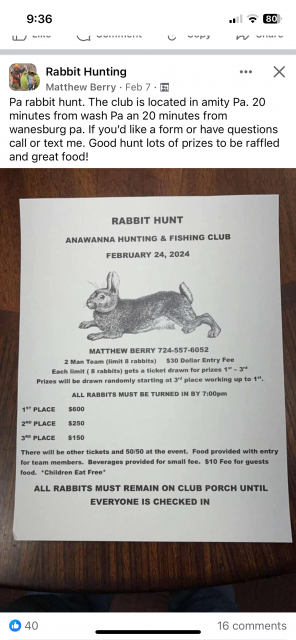 9:36
80
Rabbit Hunting
Matthew Berry · Feb 7 ·
Pa rabbit hunt. The club is located in amity Pa. 20
minutes from wash Pa an 20 minutes from
wanesburg pa. If you'd like a form or have questions
call or text me. Good hunt lots of prizes to be raffled
and great food!
RABBIT HUNT
ANAWANNA HUNTING & FISHING CLUB
FEBRUARY 24, 2024
MATTHEW BERRY 724-557-6052
2 Man Team (limit 8 rabbits) $30 Dollar Entry Fee
Each limit ( 8 rabbits) gets a ticket drawn for prizes 1st – 3rd
Prizes will be drawn randomly starting at 3rd place working up to 1st.
ALL RABBITS MUST BE TURNED IN BY 7:00pm
1ST PLACE $600
2ND PLACE $250
3RD PLACE $150
There will be other tickets and 50/50 at the event. Food provided with entry
for team members. Beverages provided for small fee. $10 Fee for guests
food. *Children Eat Free*
ALL RABBITS MUST REMAIN ON CLUB PORCH UNTIL
EVERYONE IS CHECKED IN
40
16 comments